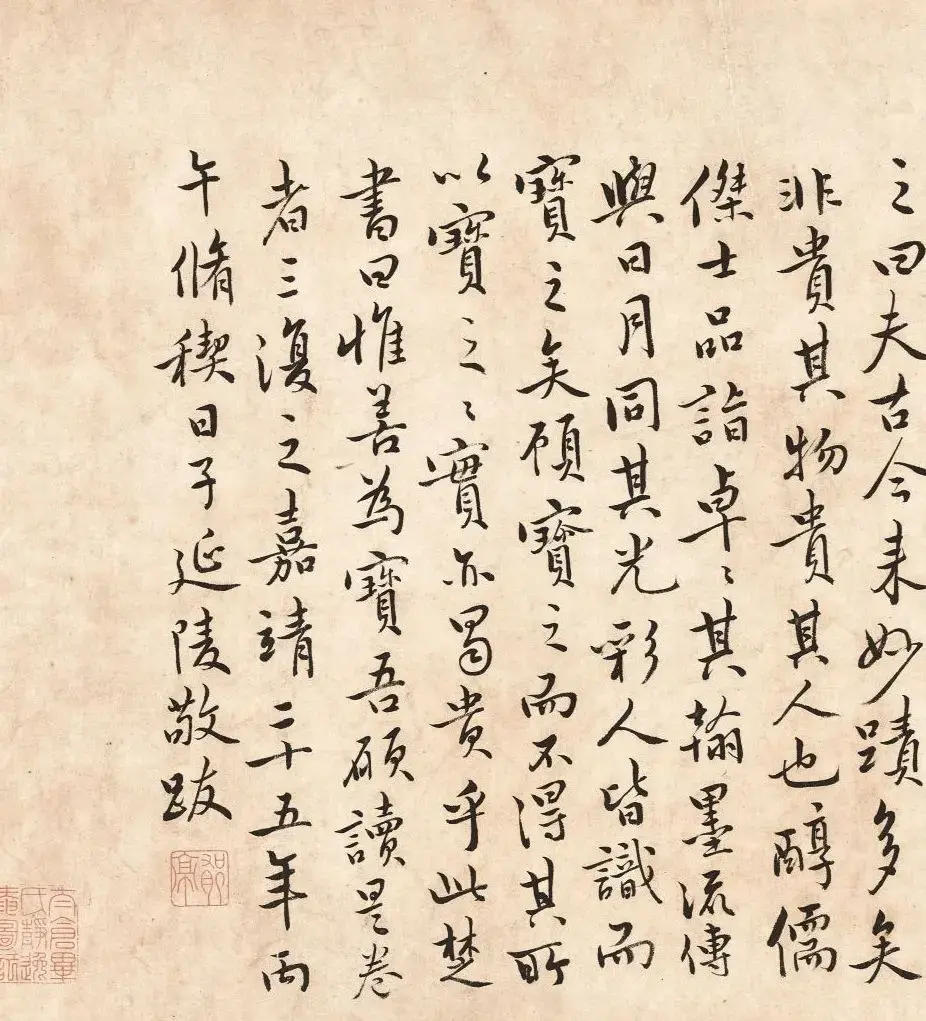 之曰夫古今来妙蹟多矣
非貴其物貴其人也醇儒
傑士品詣卓〻其翰墨流傳
與日月同其光彩人皆識而
寶之矣顧寶之而不得其所
以寶之〻實亦曷貴乎此楚
書曰惟善為寶吾願讀是卷
者三復之嘉靖二十五年丙
午脩稧日子延陵敬跋